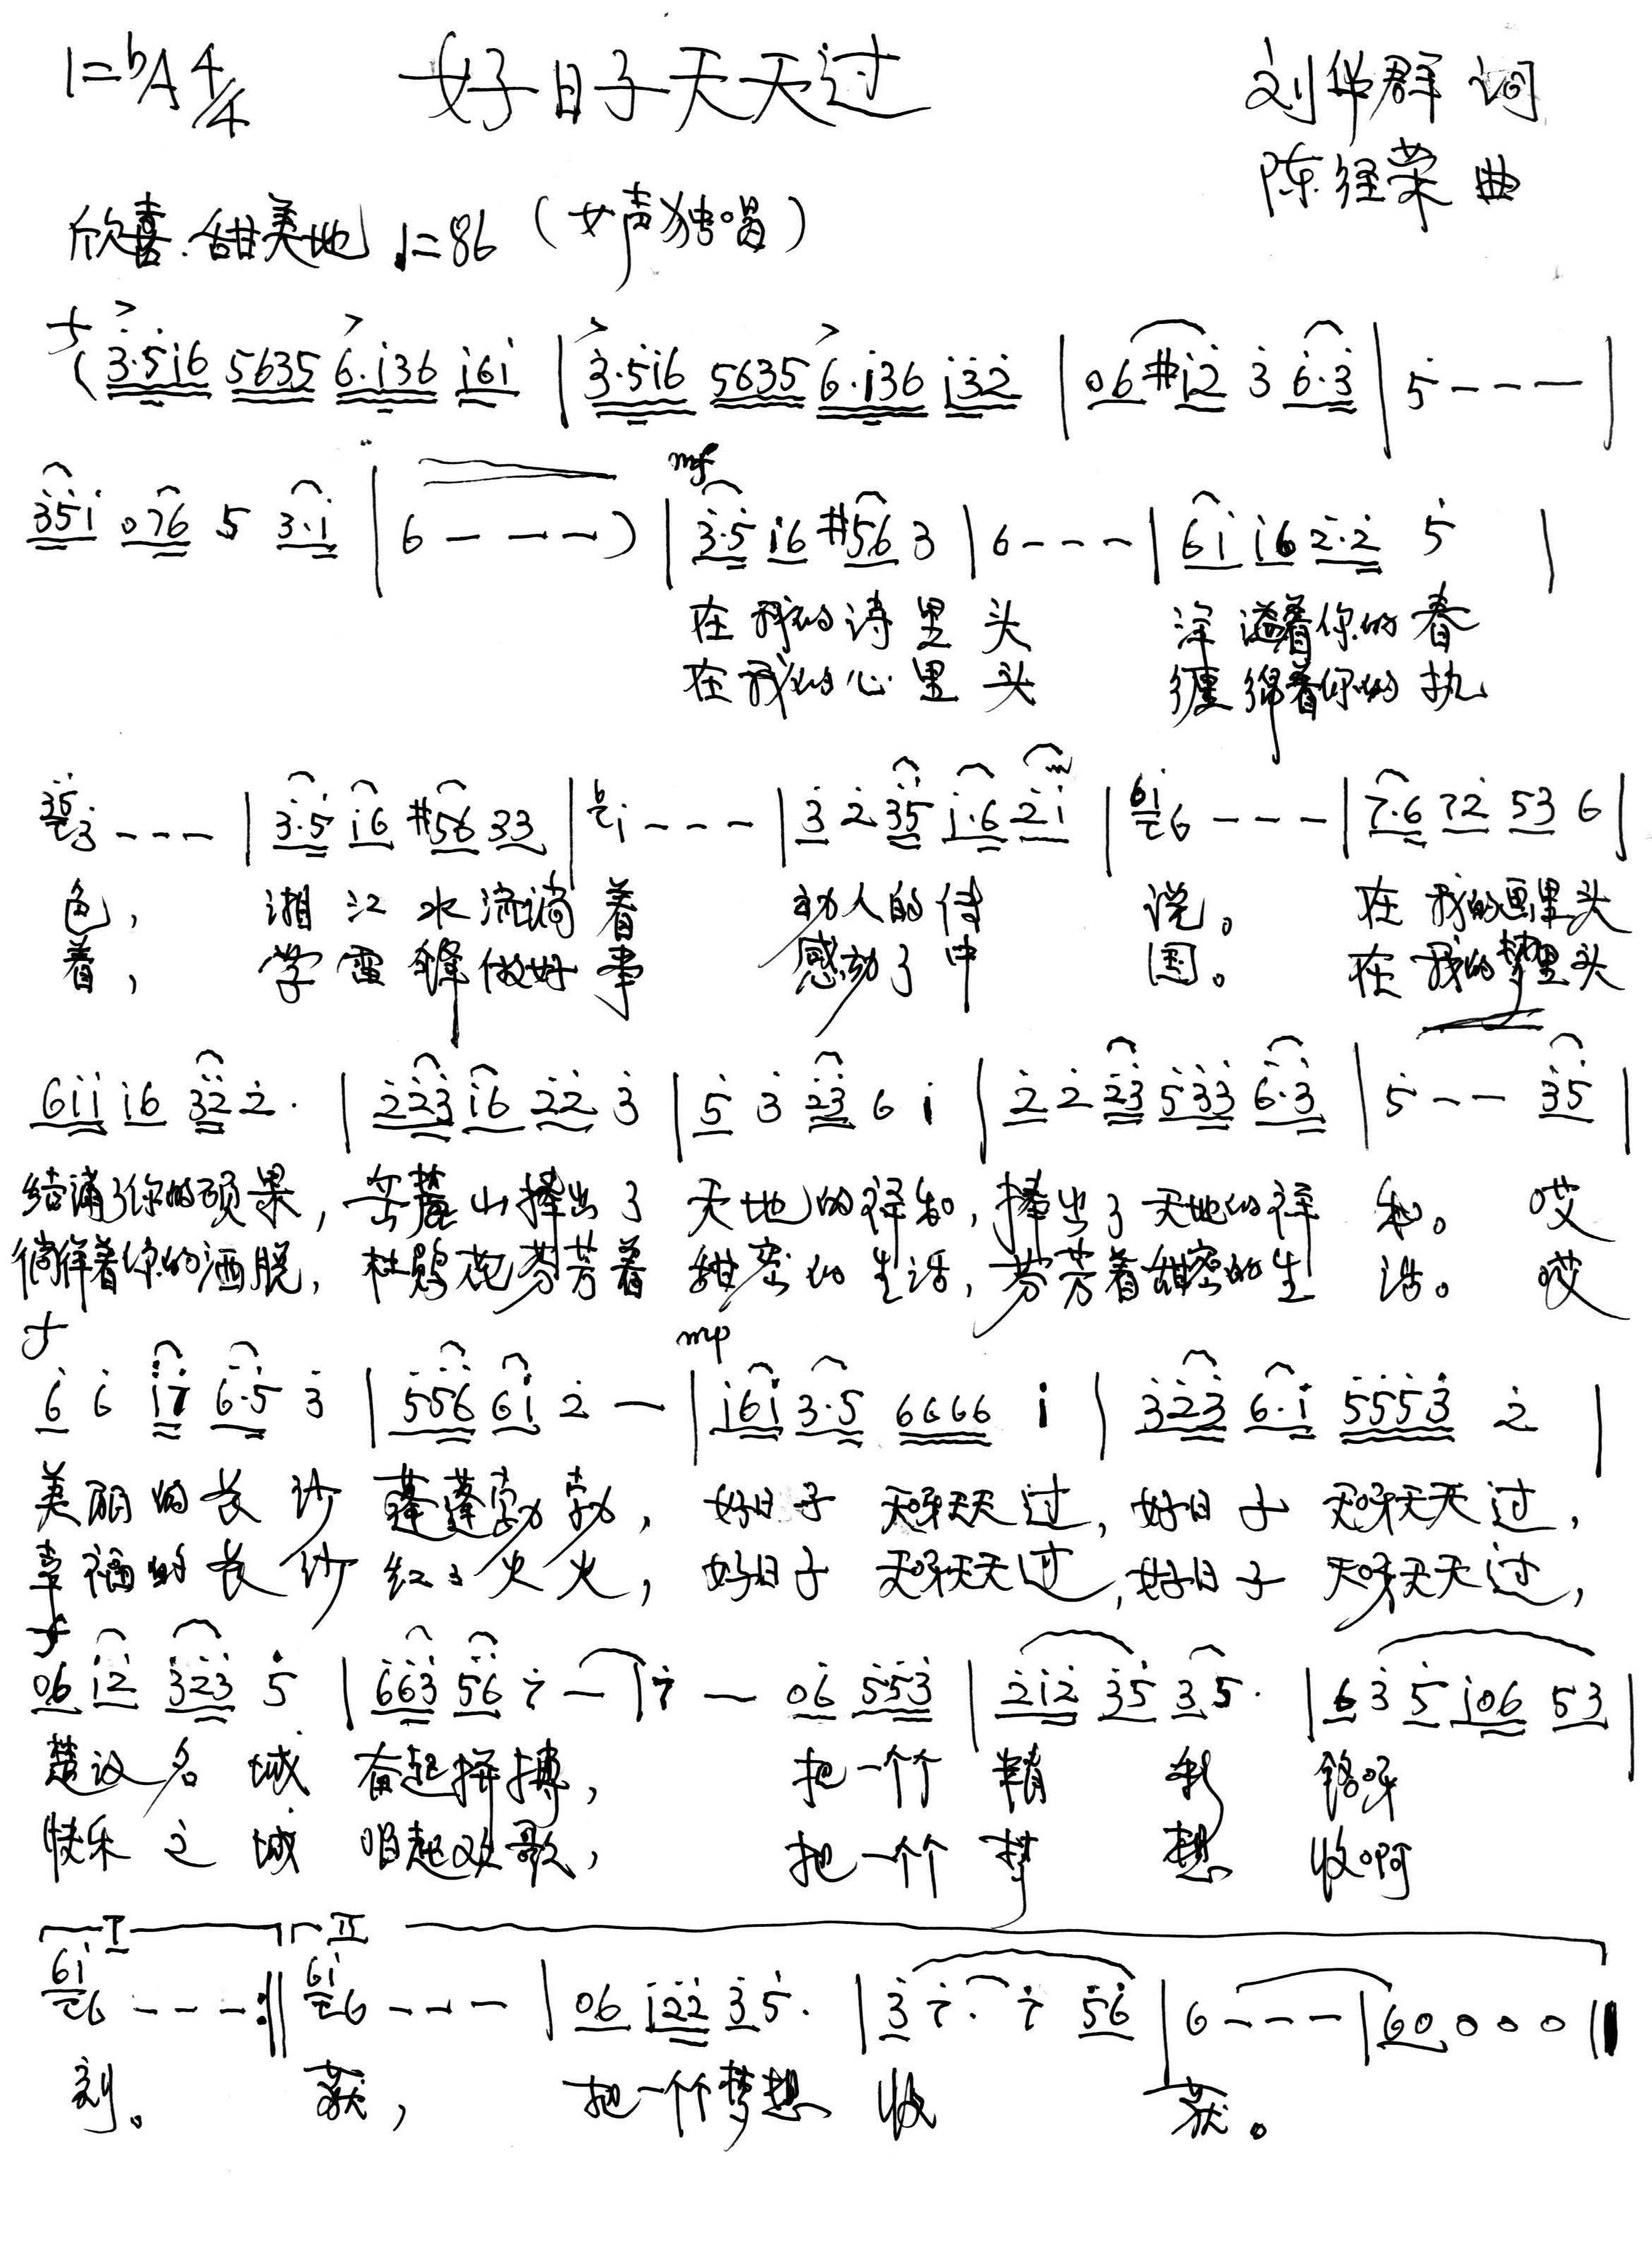 1=bA 4/4 好日子天天过 刘华群 词
陈经荣 曲
欣喜.甜美地 ♩=86 (女声独唱)
f
(3·5i6 5635 6·i36 i6i | 3·5i6 5635 6·i36 i32 | 06 #i2 3 6·3 | 5 - - - |
mf
35i 076 5 3·i | 6 - - - ) | 3·5 i6 #56 3 | 6 - - - | 6i i6 2·2 5 |
在我的诗里头 洋溢着你的春
在我的心里头 缠绵着你的执
35 3 - - - | 3·5 i6 #56 33 | 6 i - - - | 3 2 35 i·6 2i | 6i 6 - - - | 7·6 72 53 6 |
色, 湘江水流淌着 动人的传说。 在我的画里头
着, 学雷锋做好事 感动了中国。 在我的梦里头
6ii i6 32 2· | 223 i6 22 3 | 5 3 23 6 i | 2 2 23 533 6·3 | 5 - - 35 |
结满了你的硕果, 岳麓山捧出了 天地的祥和, 捧出了天地的祥和。 哎
徜徉着你的洒脱, 杜鹃花芬芳着 甜蜜的生活, 芬芳着甜蜜的生活。 哎
f mp
6 6 i7 6·5 3 | 556 6i 2 - | i6i 3·5 6666 i | 323 6·i 5553 2 |
美丽的长沙 蓬蓬勃勃, 好日子 天呀天天过, 好日子 天呀天天过,
幸福的长沙 红红火火, 好日子 天呀天天过, 好日子 天呀天天过,
f
06 i2 323 5 | 663 56 7 - | 7 - 06 553 | 2i2 35 3 5· | 6 3 5 i06 53 |
楚汉名城 奋起拼搏, 把一个个 精彩 铭呀
快乐之城 唱起欢歌, 把一个个 梦想 收啊
I II
6i 6 - - - :‖ 6i 6 - - - | 06 i22 3 5· | 3 7· 7 56 | 6 - - - | 60 0 0 0 ‖
刻。 获, 把一个个梦想 收获。